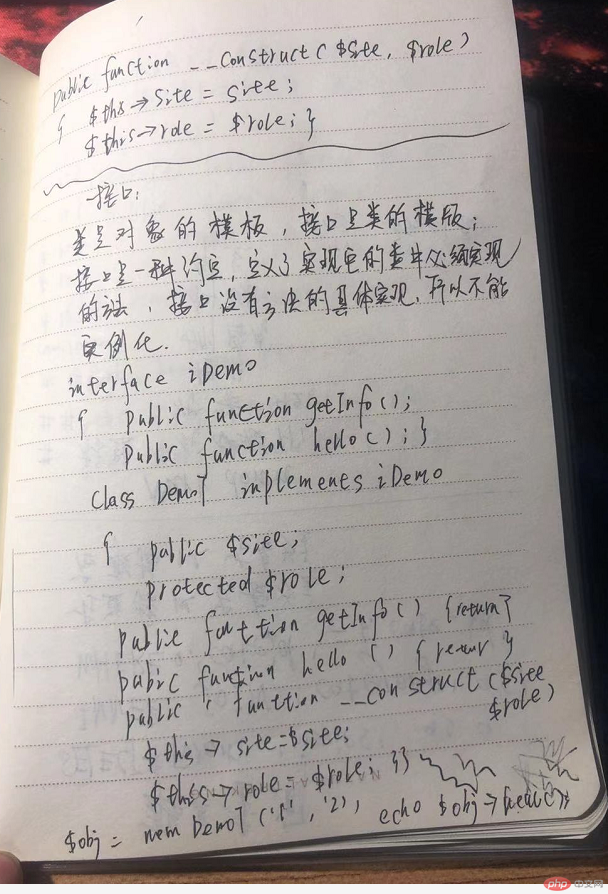 public function __construct($site, $role)
{ $this->site = site;
$this->role = $role; }
一接口:
类是对象的模板,接口是类的模版;
接口是一种约定,定义了实现它的类中必须实现
的法,接口没有方法的具体实现,所以不能
实例化.
interface iDemo
{ public function getInfo();
public function hello(); }
class Demo7 implements iDemo
{ public $site;
protected $role;
public function getInfo() {return}
pubic function hello () { retur }
public function __construct($site
$role)
$this -> site=$site;
$this->role = $role; }}
$obj = new Demo7 ('1', '2'), echo $obj->
php 中文网